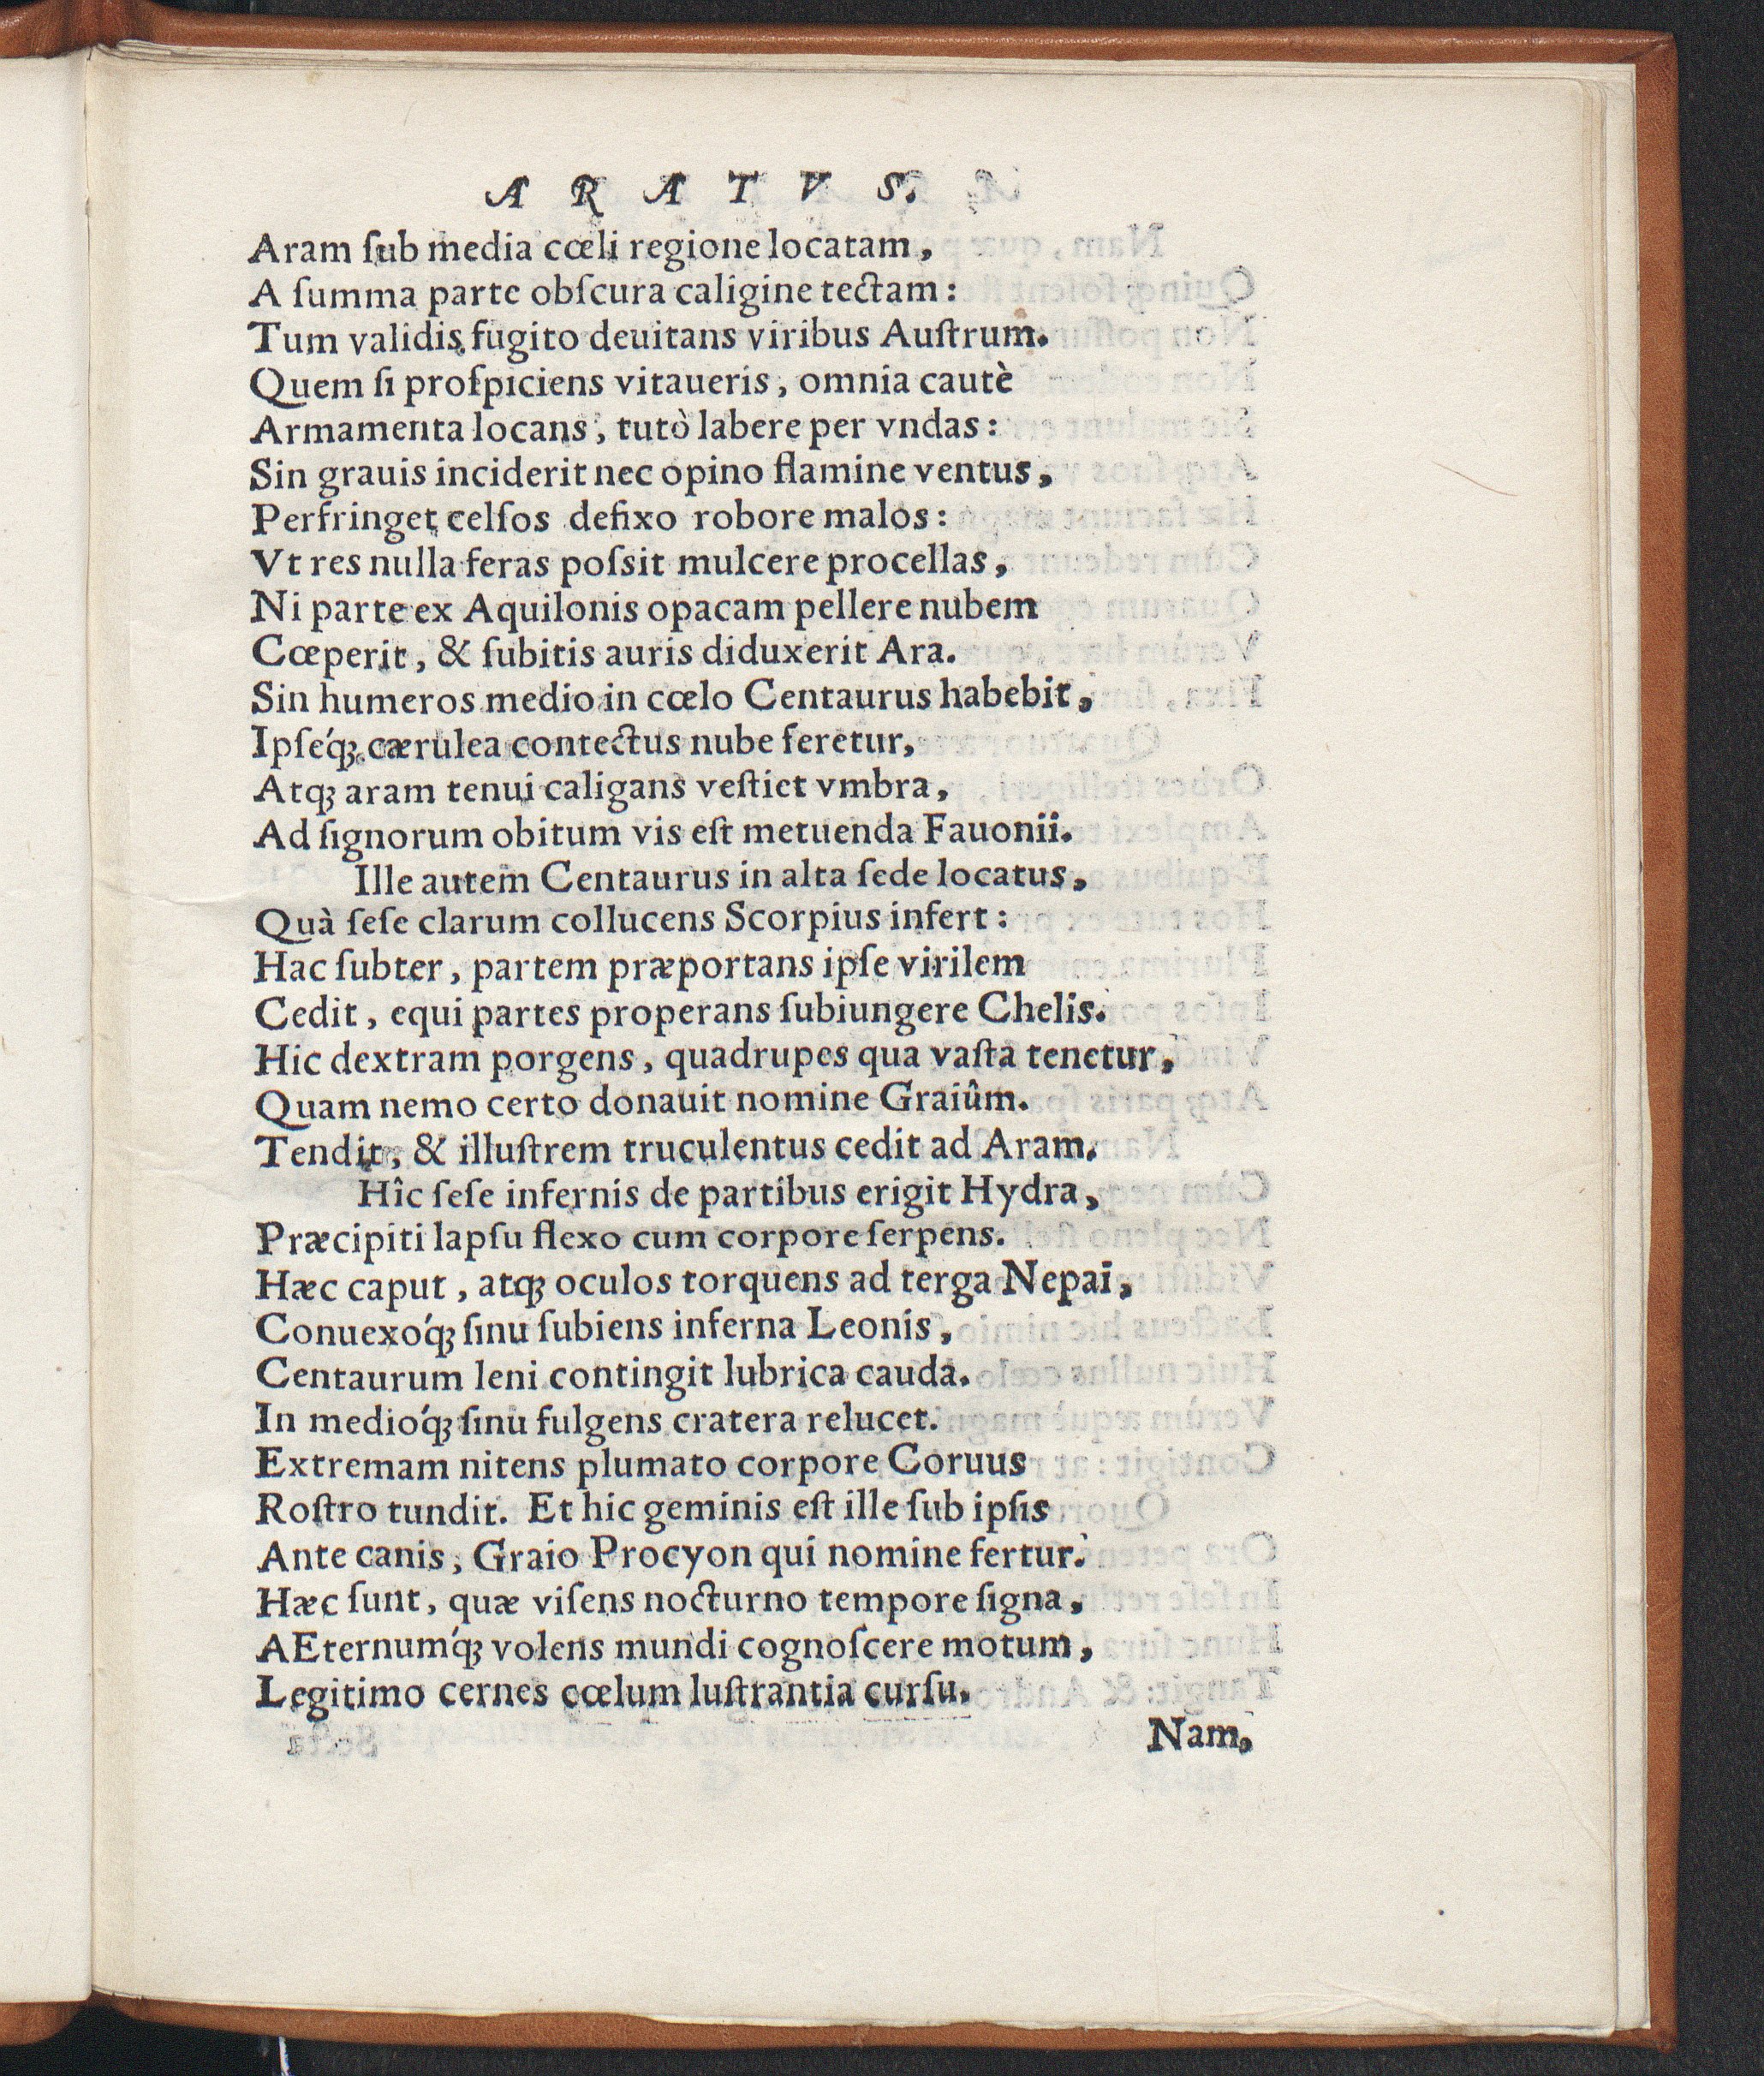 ARATVS.
Aram ſub media cœli regione locatam,
A ſumma parte obſcura caligine tectam:
Tum validis fugito deuitans viribus Auſtrum.
Quem ſi proſpiciens vitaueris, omnia cautè
Armamenta locans, tutò labere per vndas:
Sin grauis inciderit nec opino flamine ventus,
Perfringet celſos defixo robore malos:
Vt res nulla feras poſsit mulcere procellas,
Ni parte ex Aquilonis opacam pellere nubem
Cœperit, & ſubitis auris diduxerit Ara.
Sin humeros medio in cœlo Centaurus habebit,
Ipſéq́; cærulea contectus nube feretur,
Atq; aram tenui caligans veſtiet vmbra,
Ad ſignorum obitum vis eſt metuenda Fauonii.
Ille autem Centaurus in alta ſede locatus,
Quà ſeſe clarum collucens Scorpius infert:
Hac ſubter, partem præportans ipſe virilem
Cedit, equi partes properans ſubiungere Chelis.
Hic dextram porgens, quadrupes qua vaſta tenetur,
Quam nemo certo donauit nomine Graiûm.
Tendit, & illuſtrem truculentus cedit ad Aram.
Hîc ſeſe infernis de partibus erigit Hydra,
Præcipiti lapſu flexo cum corpore ſerpens.
Hæc caput, atq; oculos torquens ad terga Nepai,
Conuexóq́; ſinu ſubiens inferna Leonis,
Centaurum leni contingit lubrica cauda.
In medioq́; ſinu fulgens cratera relucet.
Extremam nitens plumato corpore Coruus
Roſtro tundit. Et hic geminis eſt ille ſub ipſis
Ante canis, Graio Procyon qui nomine fertur.
Hæc ſunt, quæ viſens nocturno tempore ſigna,
AEternumq́; volens mundi cognoſcere motum,
Legitimo cernes cœlum luſtrantia curſu.
Nam,